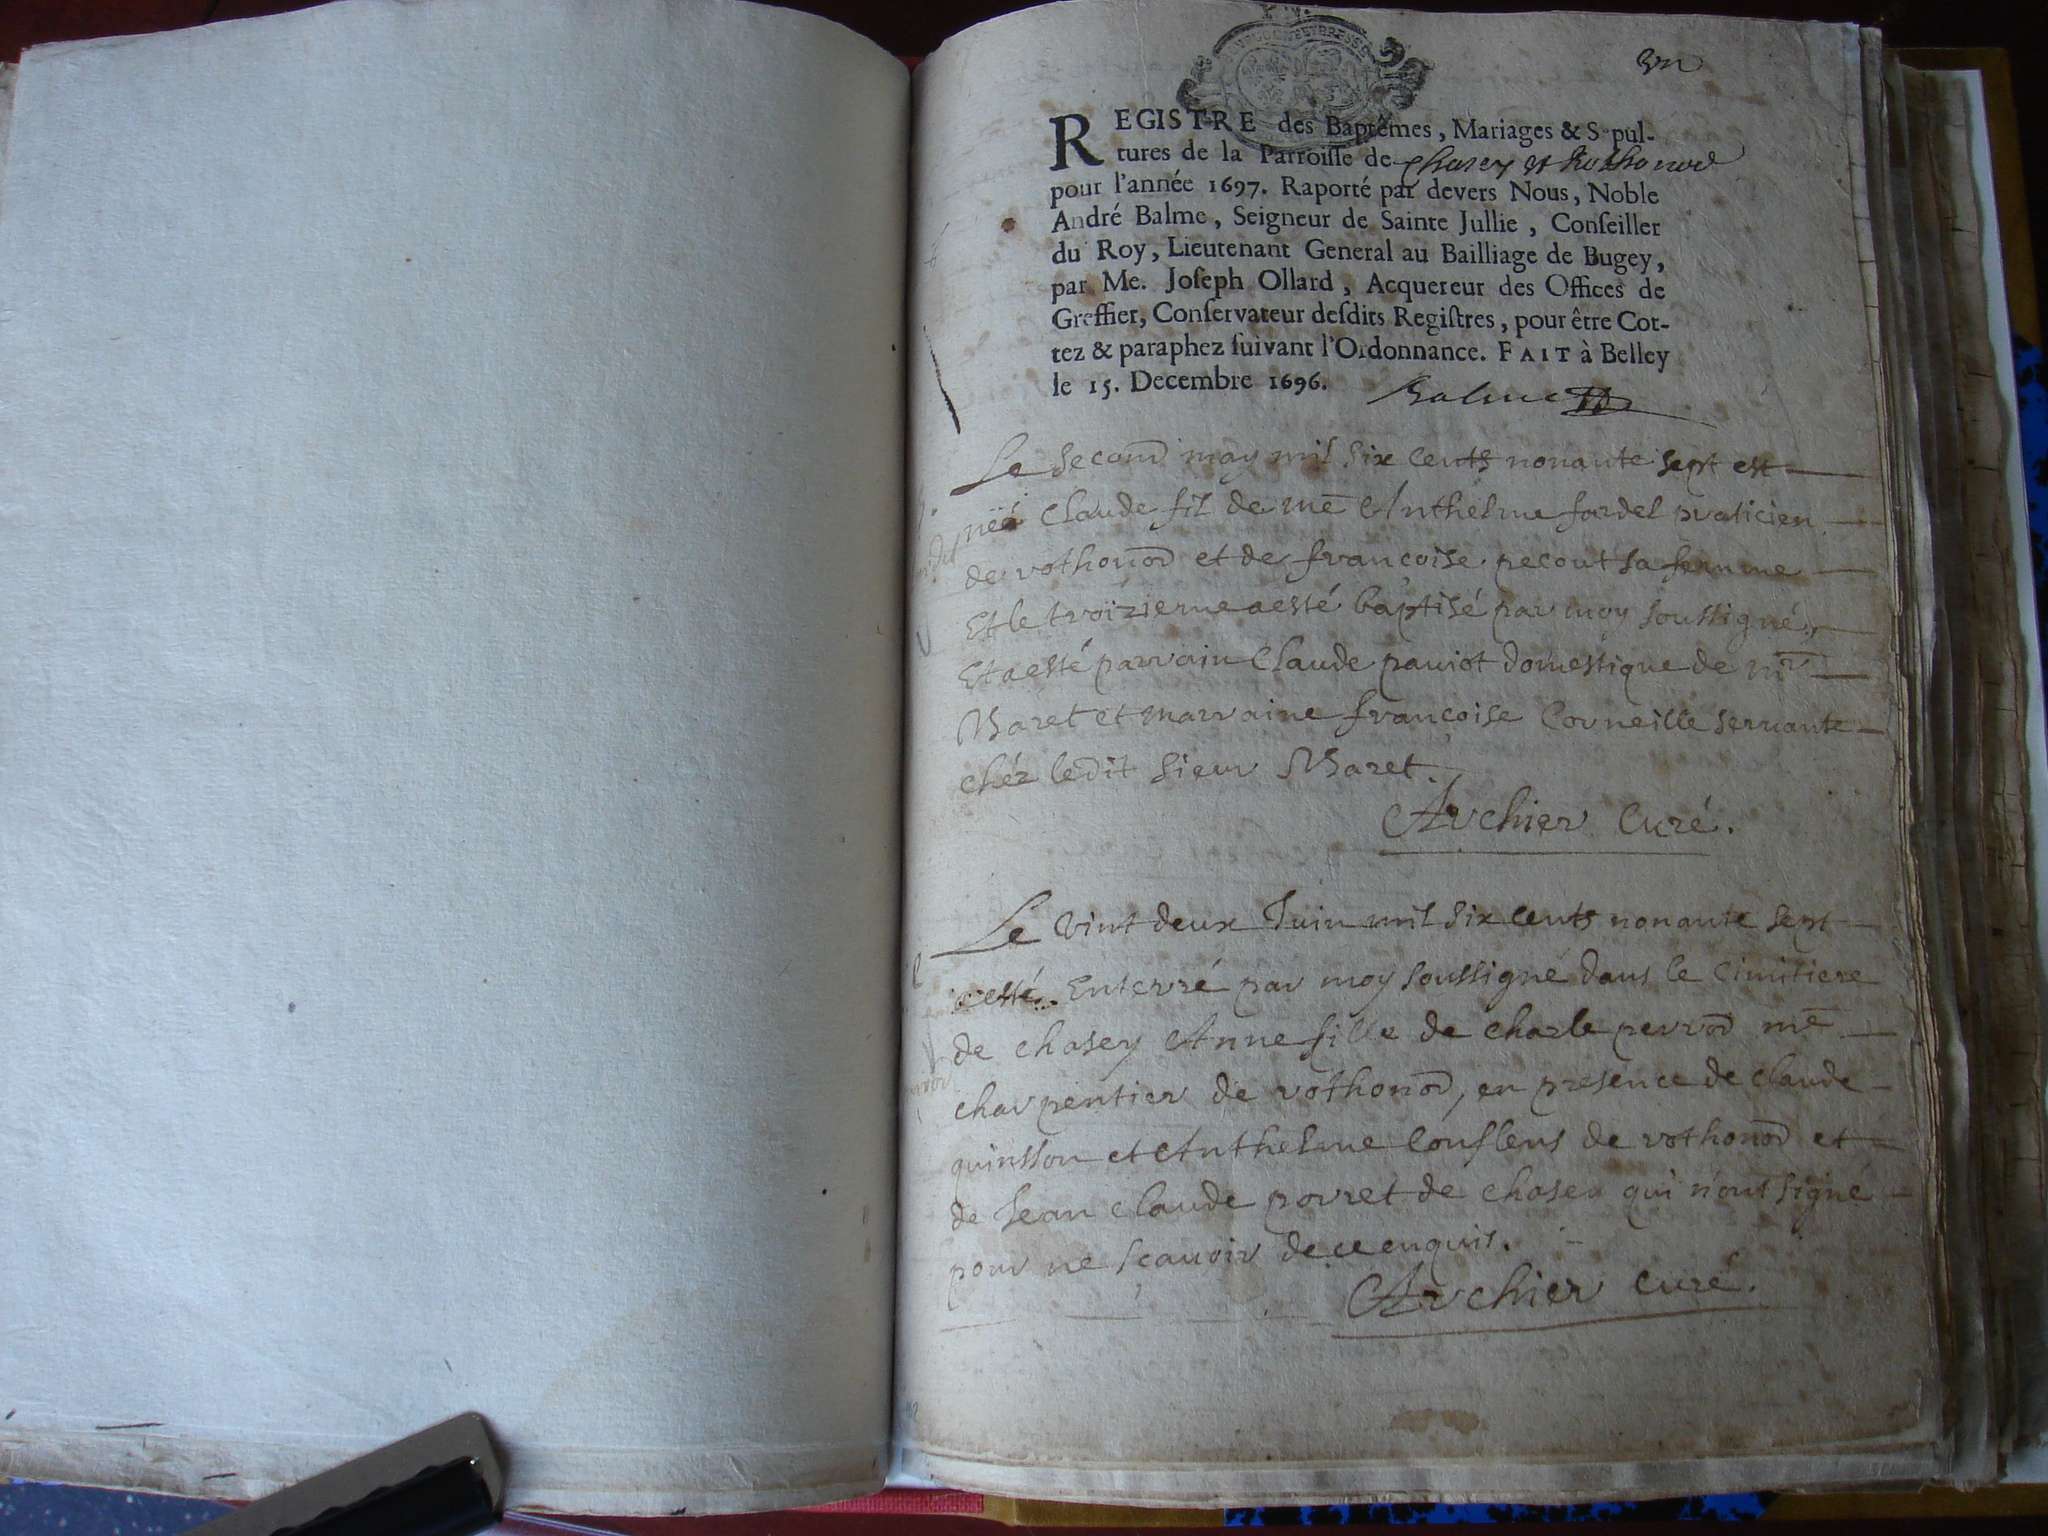 un
REGISTRE des Baptêmes, Mariages & Sepul-
tures de la Parroisse de Chasey et Rothonod
pour l'année 1697. Raporté par devers Nous, Noble
André Balme, Seigneur de Sainte Jullie, Conseiller
du Roy, Lieutenant General au Bailliage de Bugey,
par Me. Joseph Ollard, Acquereur des Offices de
Greffier, Conservateur desdits Registres, pour être Cot-
tez & paraphez suivant l'Ordonnance. FAIT à Belley
le 15. Decembre 1696. Balme
Le second may mil six cents nonante sept est
néé Claude fil de me Anthelme fardel praticien
de rothonod et de francoise pecout sa femme
Et le troizieme a esté baptisé par moy soussigné,
Et a esté parrain Claude paviot domestique de mr
Maret et marraine francoise Corneille servante
chéz ledit sieur Maret.
Archier Curé.
Le vint deux Juin mil six cents nonante sept
a esté Enterré par moy soussigné dans le Cimitiere
de chasey Anne fille de Charle perrod me
charpentier de rothonod, en presence de claude
quinsson et Anthelme Couflens de rothonod et
de Jean claude porret de chasey qui n'ont signé
pour ne scavoir de ce enquis.
Archier curé.